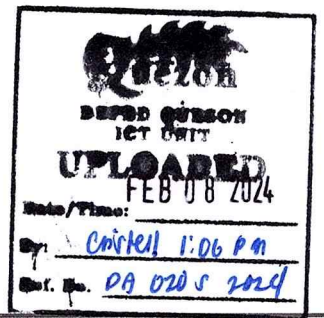 Quezon
DEPED QUEZON
ICT UNIT
UPLOADED
FEB 08 2024
Date/Time:
By: Cristell 1:06 PM
Ref. No. DA 020 s 2024